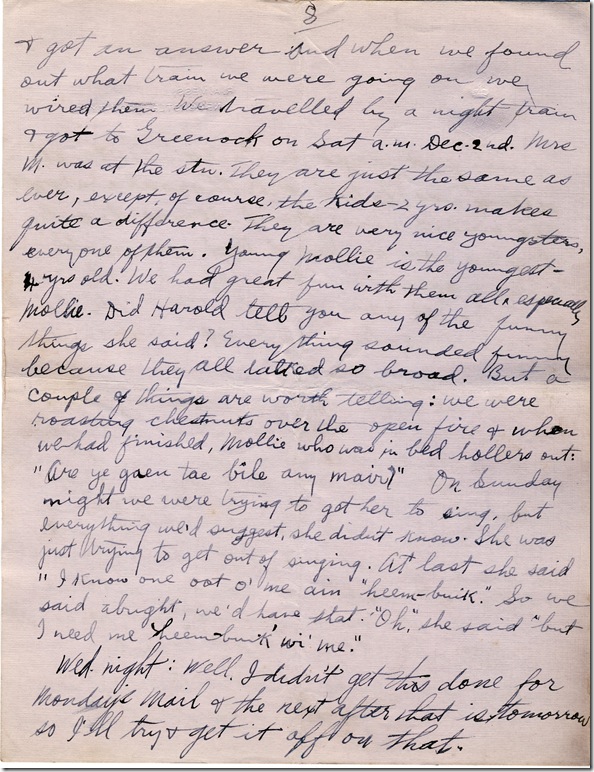 8
& got an answer and when we found
out what train we were going on we
wired them We travelled by a night train
& got to Greenock on Sat a.m. Dec. 2nd. Mrs
M. was at the stn. They are just the same as
ever, except, of course, the kids - 2 yrs. makes
quite a difference. They are very nice youngsters,
everyone of them. Young Mollie is the youngest -
4 yrs old. We had great fun with them all, especially
Mollie. Did Harold tell you any of the funny
things she said? Everything sounded funny
because they all talked so broad. But a
couple of things are worth telling: we were
roasting chestnuts over the open fire & when
we had finished, Mollie who was in bed hollers out:
"Are ye gaen tae bile any mair?" On Sunday
night we were trying to get her to sing, but
everything we'd suggest, she didn't know. She was
just trying to get out of singing. At last she said
"I know one oot o' me ain "heem-buik." So we
said alright, we'd have that. "Oh," she said "but
I need me 'heem-buik' wi' me."
Wed. night: Well, I didn't get this done for
Monday's mail & the next after that is tomorrow
so I'll try & get it off on that.